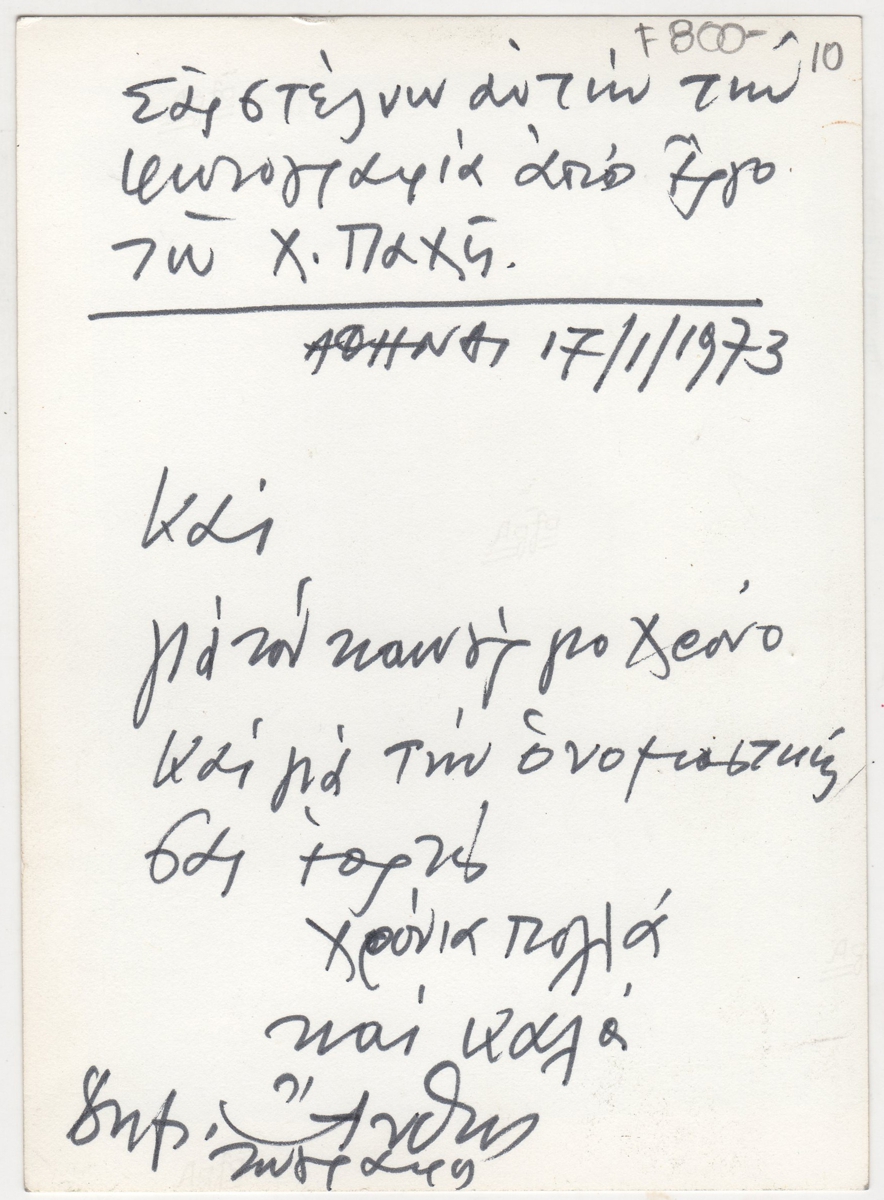 F 800- 10
Σᾶς στέλνω αὐτὴν τὴν
φωτογραφία ἀπὸ ἔργο
τοῦ Χ. Παχῆ.
ΑΘΗΝΑ, 17/1/1973
Καὶ
γιὰ τὸν καινούργιο χρόνο
καὶ γιὰ τὴν ὀνομαστική
σας ἑορτὴ
χρόνια πολλά
καὶ καλά
Δημ.